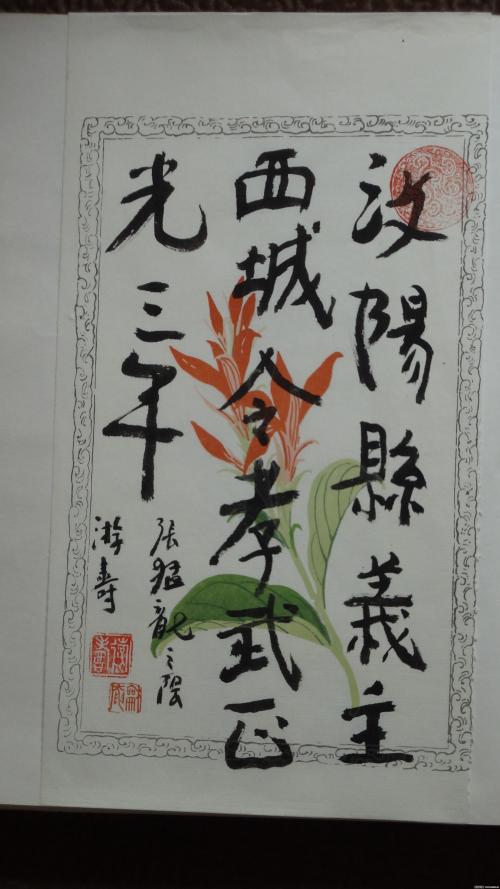 汶陽縣義主
西城人之孝武正
光三年
張猛龍之陰
游壽